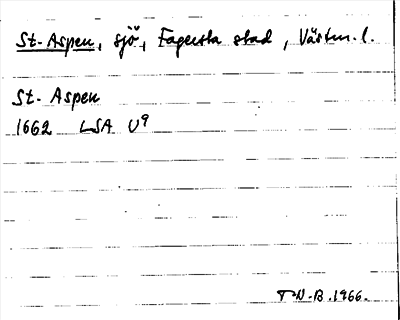 St. Aspen, sjö, Fagersta stad, Västm. l.
St. Aspen
1662 LSA U9
T N-B. 1966.